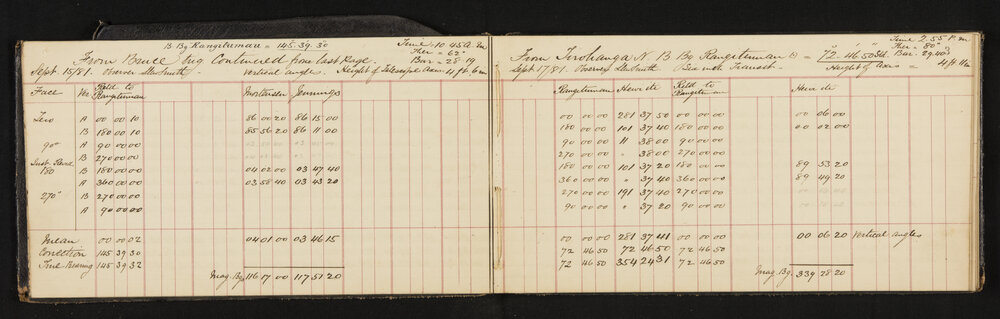 B Bg Rangitumau = 145.39.30 Time 10 45 A.M.
Ther = 62°
From Bruce trig Continued from last Page. Bar = 28.19
Sept. 15/81. Observer Smith Vertical angles. Height of Telescope Axis 4 ft 6 in
Face Ver Held to Rangitumau Mortensen Jennings
Zero A 00 00 10 86 00 20 86 15 00
B 180 00 10 85 56 20 86 11 00
90° A 90 00 00
B 270 00 00
Inst. Revd 180 B 180 00 00 04 02 00 03 47 40
A 360 00 00 03 58 40 03 43 20
270° B 270 00 00
A 90 00 00
Mean 00 00 02 04 01 00 03 46 15
Correction 145 39 30
True Bearing 145 39 32
Mag. Bg. 116 17 00 117 51 20
Time 2.55 P.m.
Ther = 80°
From Tirohanga N B Bg Rangitumau = 72° 46' 50" Bar = 29.40
Sept 17/81. Observer Smith Height of axis = 4 ft 11 in
Rangitumau Hewide Held to Rangitumau Hewide
00 00 00 281 37 50 00 00 00 00 06 00
180 00 00 101 37 40 180 00 00 00 02 00
90 00 00 11 38 00 90 00 00
270 00 00 " 38 00 270 00 00
180 00 00 101 37 20 180 00 00 89 53 20
360 00 00 " 37 40 360 00 00 89 49 20
270 00 00 191 37 40 270 00 00
90 00 00 " 37 20 90 00 00
00 00 00 281 37 41 00 00 00 00 06 20 Vertical angles
72 46 50 72 46 50 72 46 50
72 46 50 354 24 31 72 46 50
Mag Bg. 339 28 20